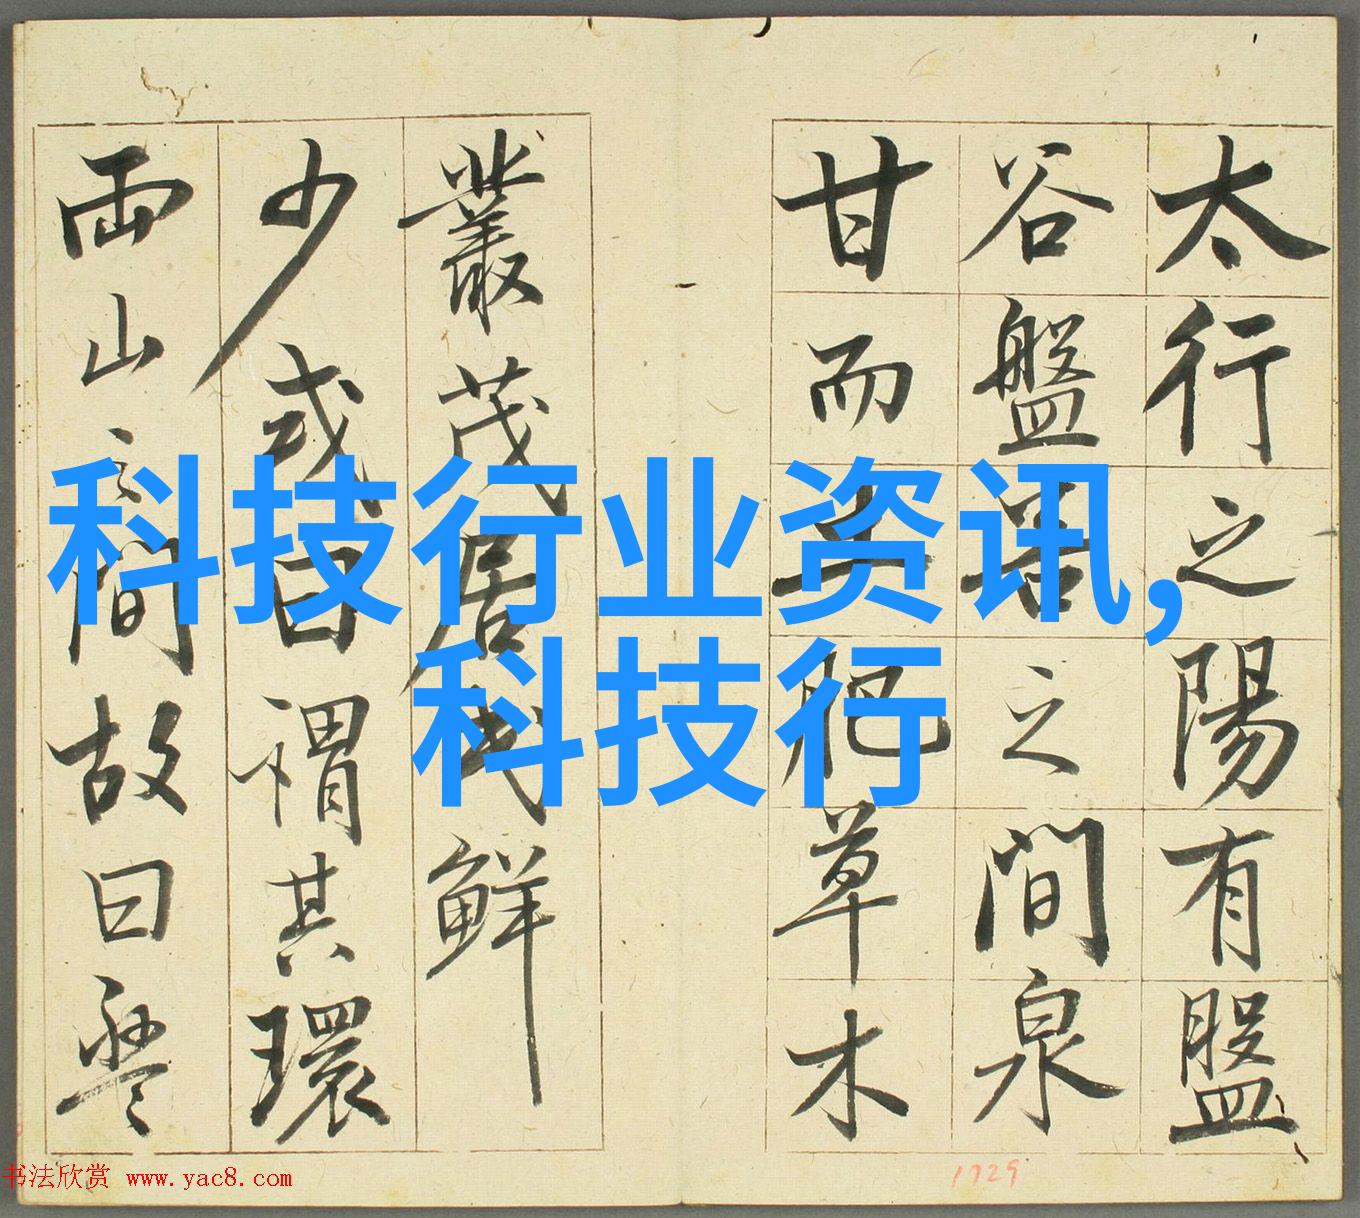 太行之陽有盤
谷盤谷之間泉
甘而土肥草木
叢茂居民鮮
少或曰謂其環
兩山之間故曰盤
科技行业资讯,
科技行
书法欣赏 www.yac8.com
1729